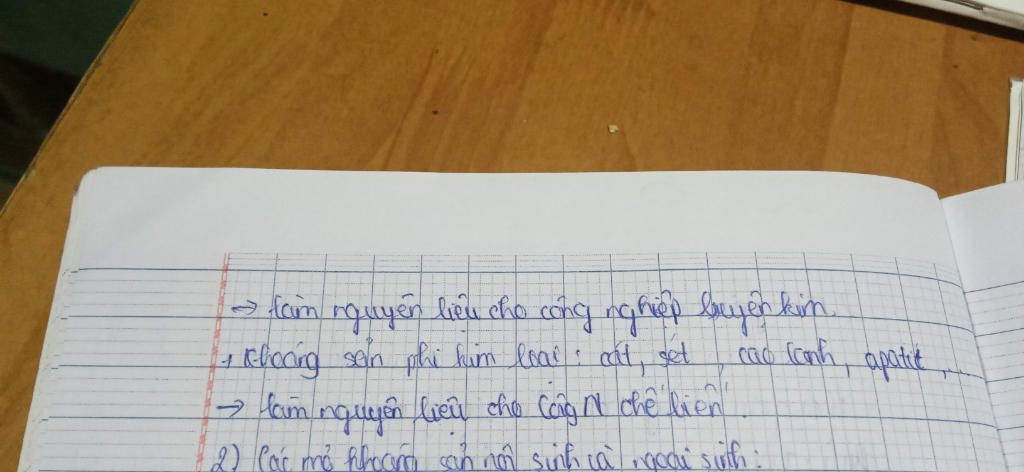 → làm nguyên liệu cho công nghiệp luyện kim.
+ Khoáng sản phi kim loại : cát, sét, cao lanh, apatit,...
→ làm nguyên liệu cho công N chế biến.
2) Các mỏ khoáng sản nội sinh và ngoại sinh :